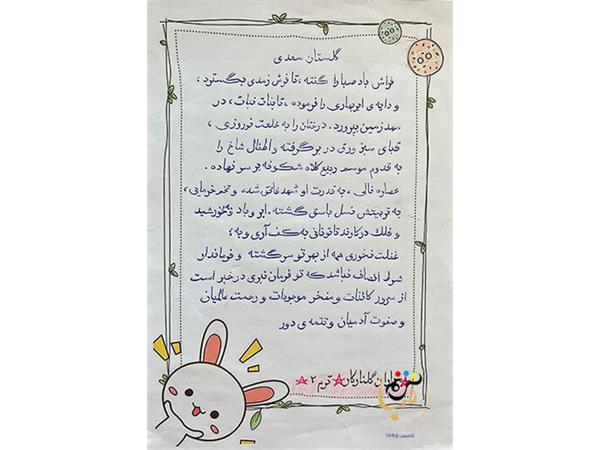 گلستان سعدی
فراش باد صبا را گفته ، تا فرش زمردی بگسترد ،
و دایه‌ی ابر بهاری را فرموده ، تا بنات نبات ، در
مهد زمین بپرورد . درختان را به خلعت نوروزی ،
قبای سبز ورق در بر گرفته و اطفال شاخ را
به قدوم موسم ربیع کلاه شکوفه بر سر نهاده .
عصاره نالی ، به قدرت او شهد فائق شده و تخم خرمایی ،
به تربیتش نسل باسق گشته . ابر و باد و خورشید
و فلک در کارند تا تو نانی به کف آری و به
غفلت نخوری همه از بهر تو سرگشته و فرمانبردار
شرط انصاف نباشد که تو فرمان نبری در خبر است
از سرور کائنات و مفخر موجودات و رحمت عالمیان
و صفوت آدمیان و تتمه ی دور
گلنار کار ترم ۲
تاسیس ۱۳۸۵